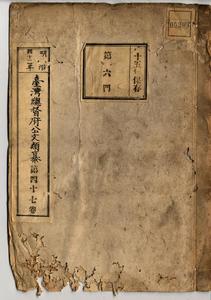 明治
四十二年
臺灣總督府公文類纂第四十七卷
十五年保存
第六門